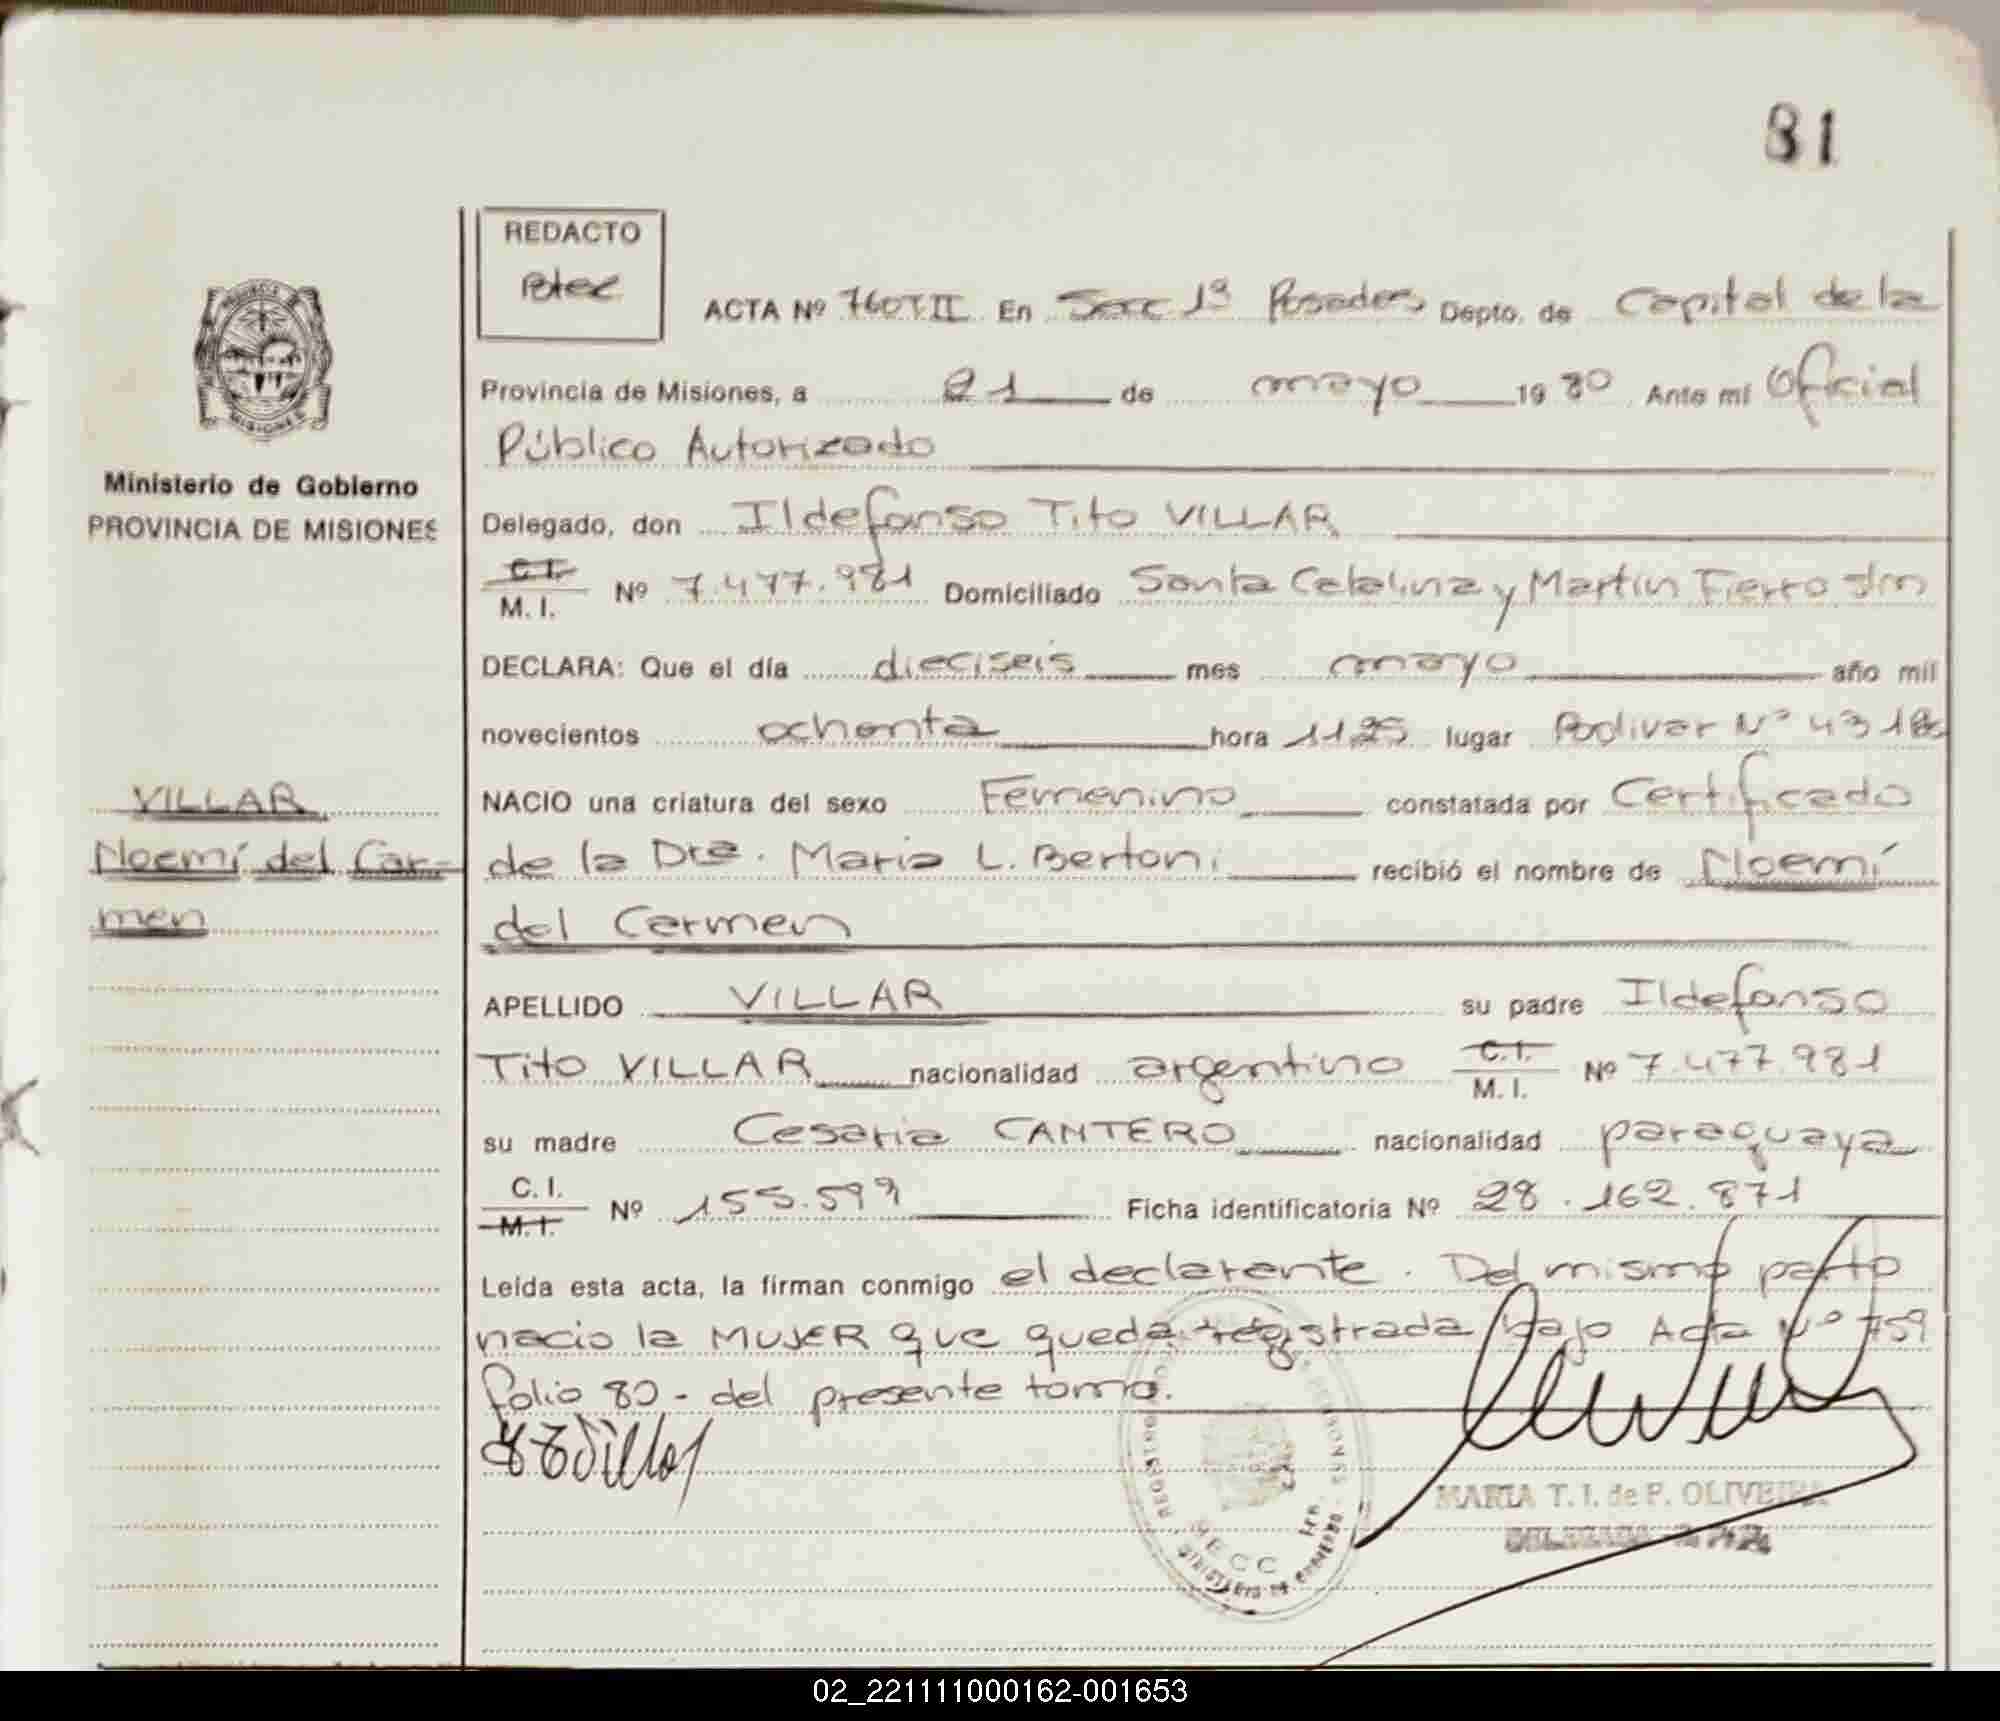 81
REDACTO
ACTA Nº 760 T II En Secc 1ª Posadas Depto. de Capital de la
Provincia de Misiones, a 21 de mayo 1980 Ante mí Oficial
Público Autorizado
Ministerio de Gobierno
PROVINCIA DE MISIONES
Delegado, don Ildefonso Tito VILLAR
C.I.
M. I. Nº 7.477.981 Domiciliado Santa Catalina y Martín Fierro s/n
DECLARA: Que el día dieciseis mes mayo año mil
novecientos ochenta hora 11,25 lugar Bolivar Nº 431
VILLAR
NACIO una criatura del sexo Femenino constatada por Certificado
Noemí del Car-
de la Dra. Maria L. Bertoni recibió el nombre de Noemí
men
del Carmen
APELLIDO VILLAR su padre Ildefonso
Tito VILLAR nacionalidad argentino C.I.
M. I. Nº 7.477.981
su madre Cesaria CANTERO nacionalidad paraguaya
C. I.
M. I. Nº 155.599 Ficha identificatoria Nº 28.162.871
Leída esta acta, la firman conmigo el declarante. Del mismo parto
nacio la MUJER que queda registrada bajo Acta Nº 759
folio 80 - del presente tomo.
MARIA T. I. de P. OLIVEIRA
02_221111000162-001653